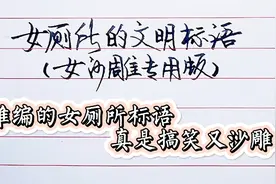 女厕所的文明标语
(女沙雕专用版)
谁编的女厕所标语
真是搞笑又沙雕